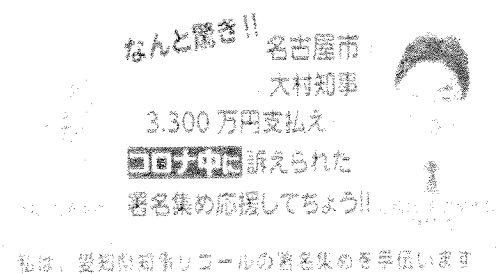 なんと驚き!!
名古屋市
大村知事
3.300 万円支払え
コロナ中に訴えられた
署名集め応援してちょう!!
私は、愛知県知事リコールの署名集めを手伝います